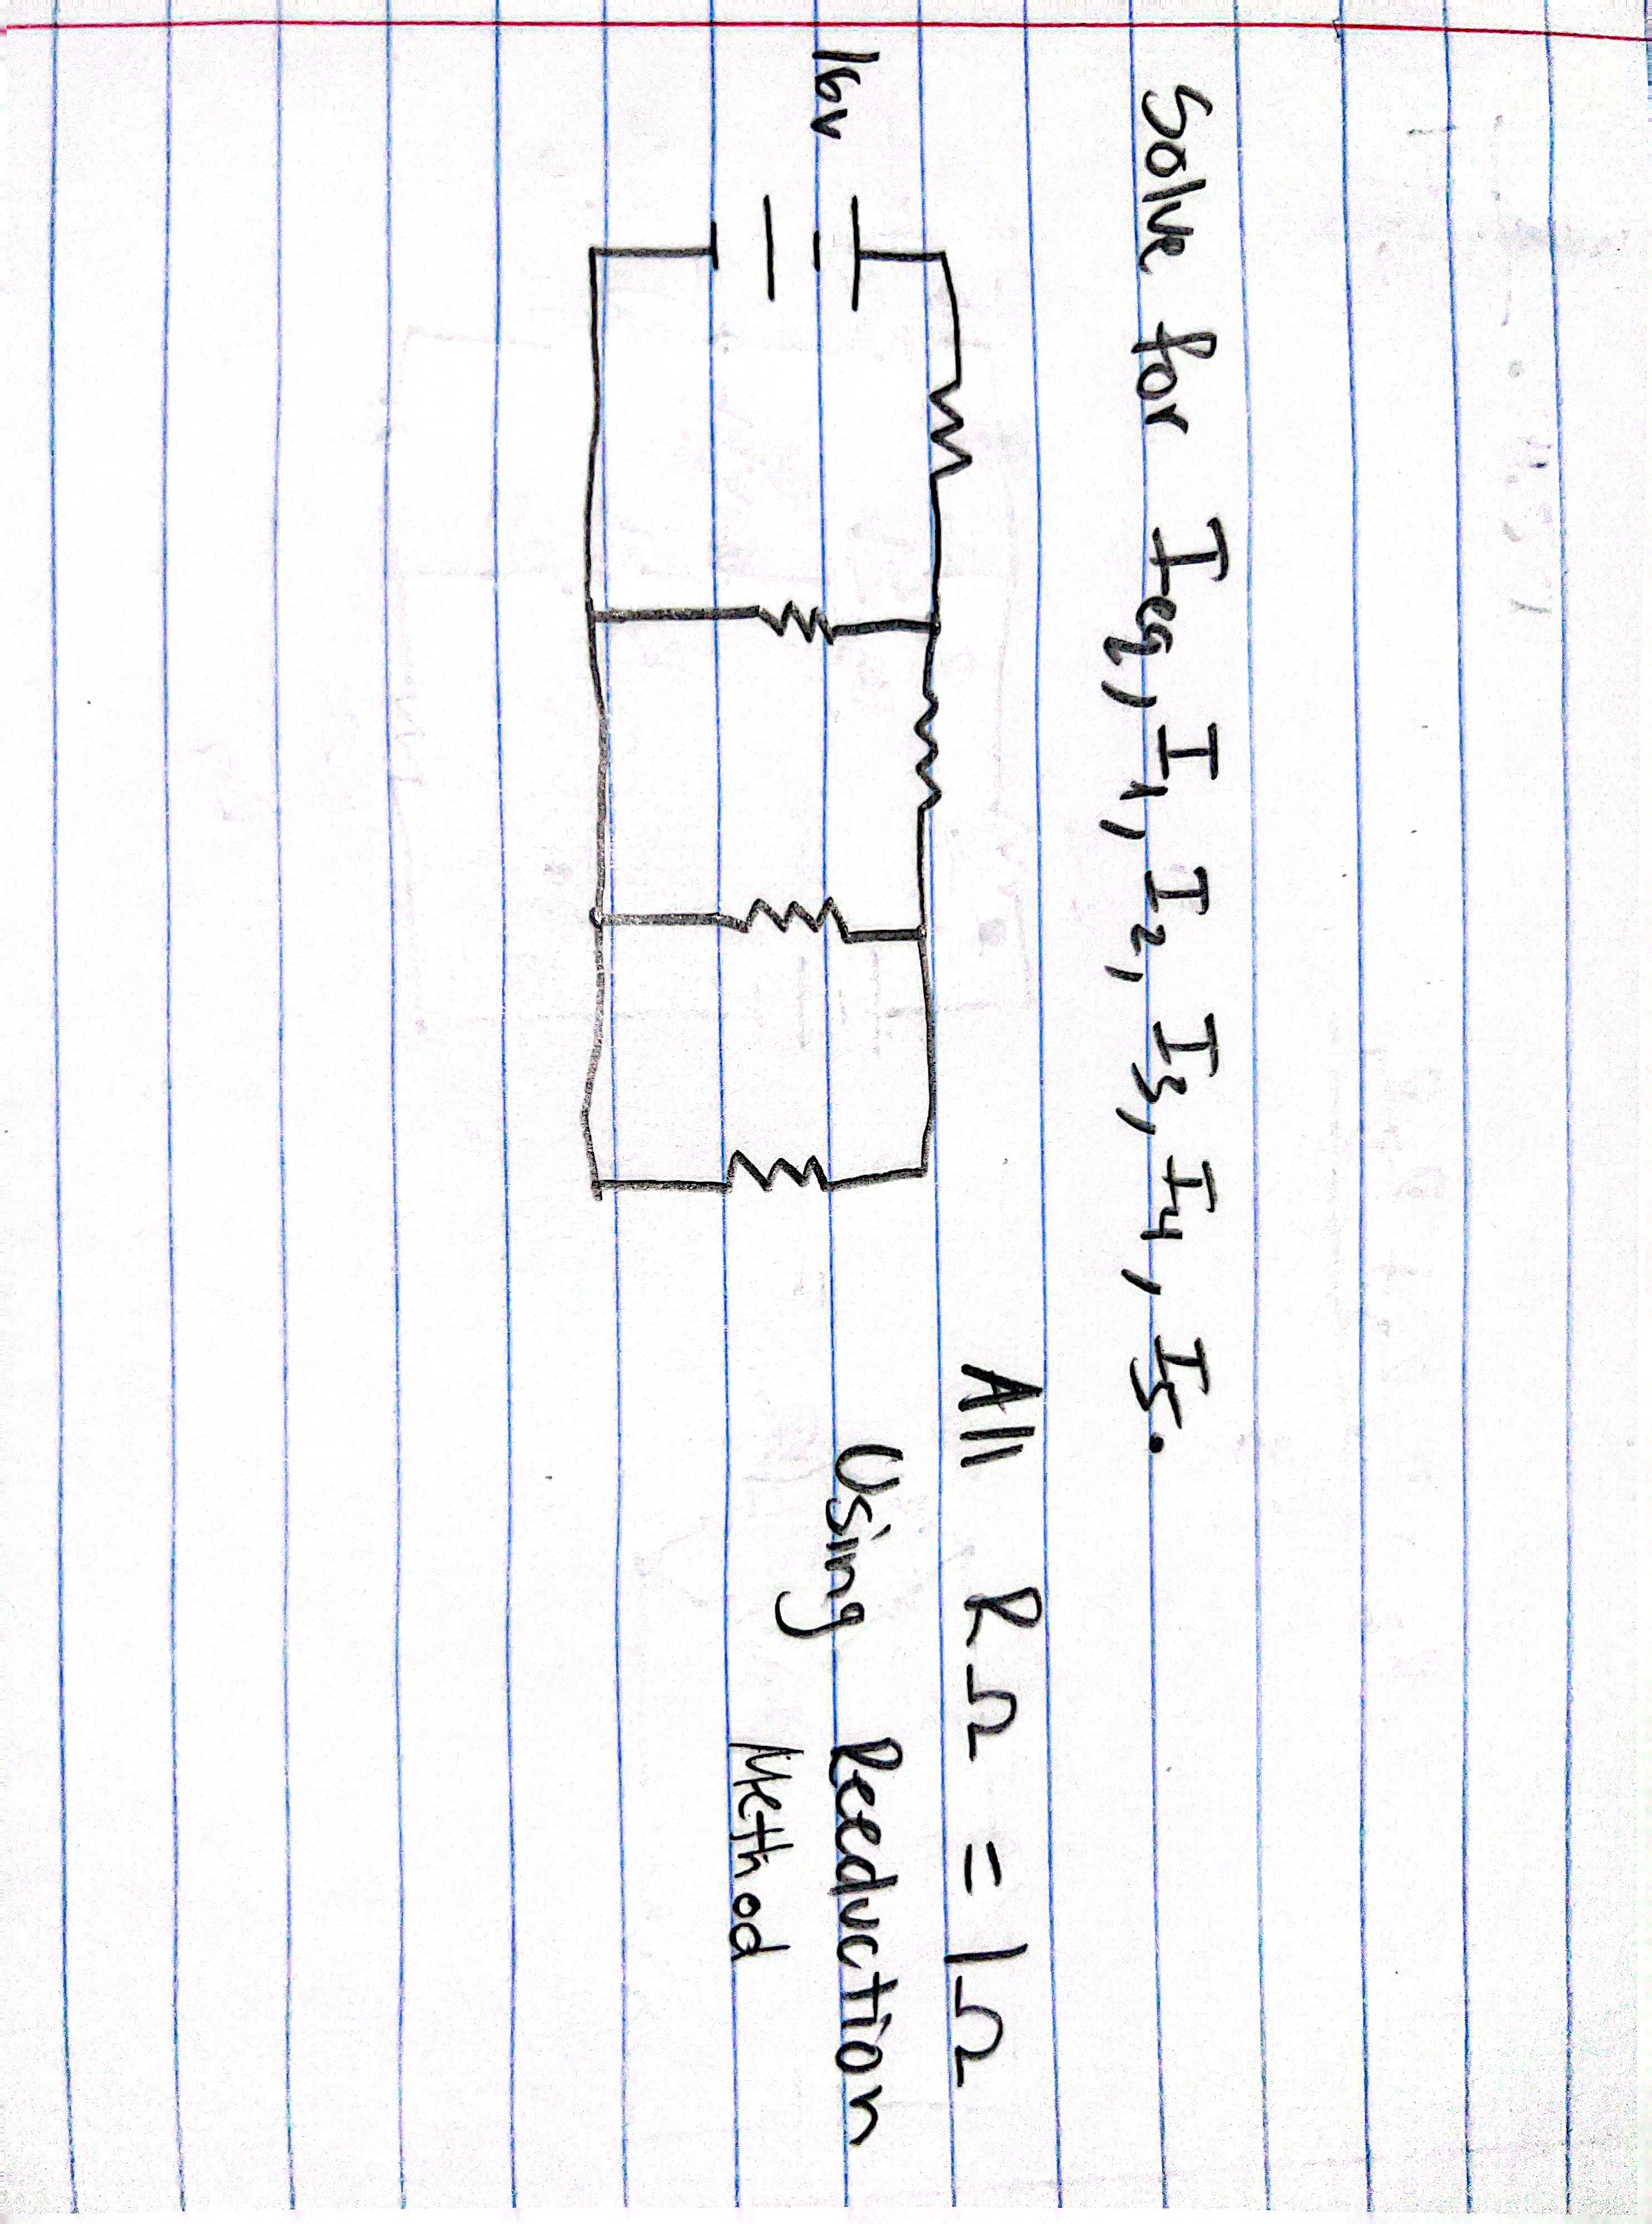 Solve for Ieq, I1, I2, I3, I4, I5.
All RΩ = 1Ω
16v
Using Reeduction
Method